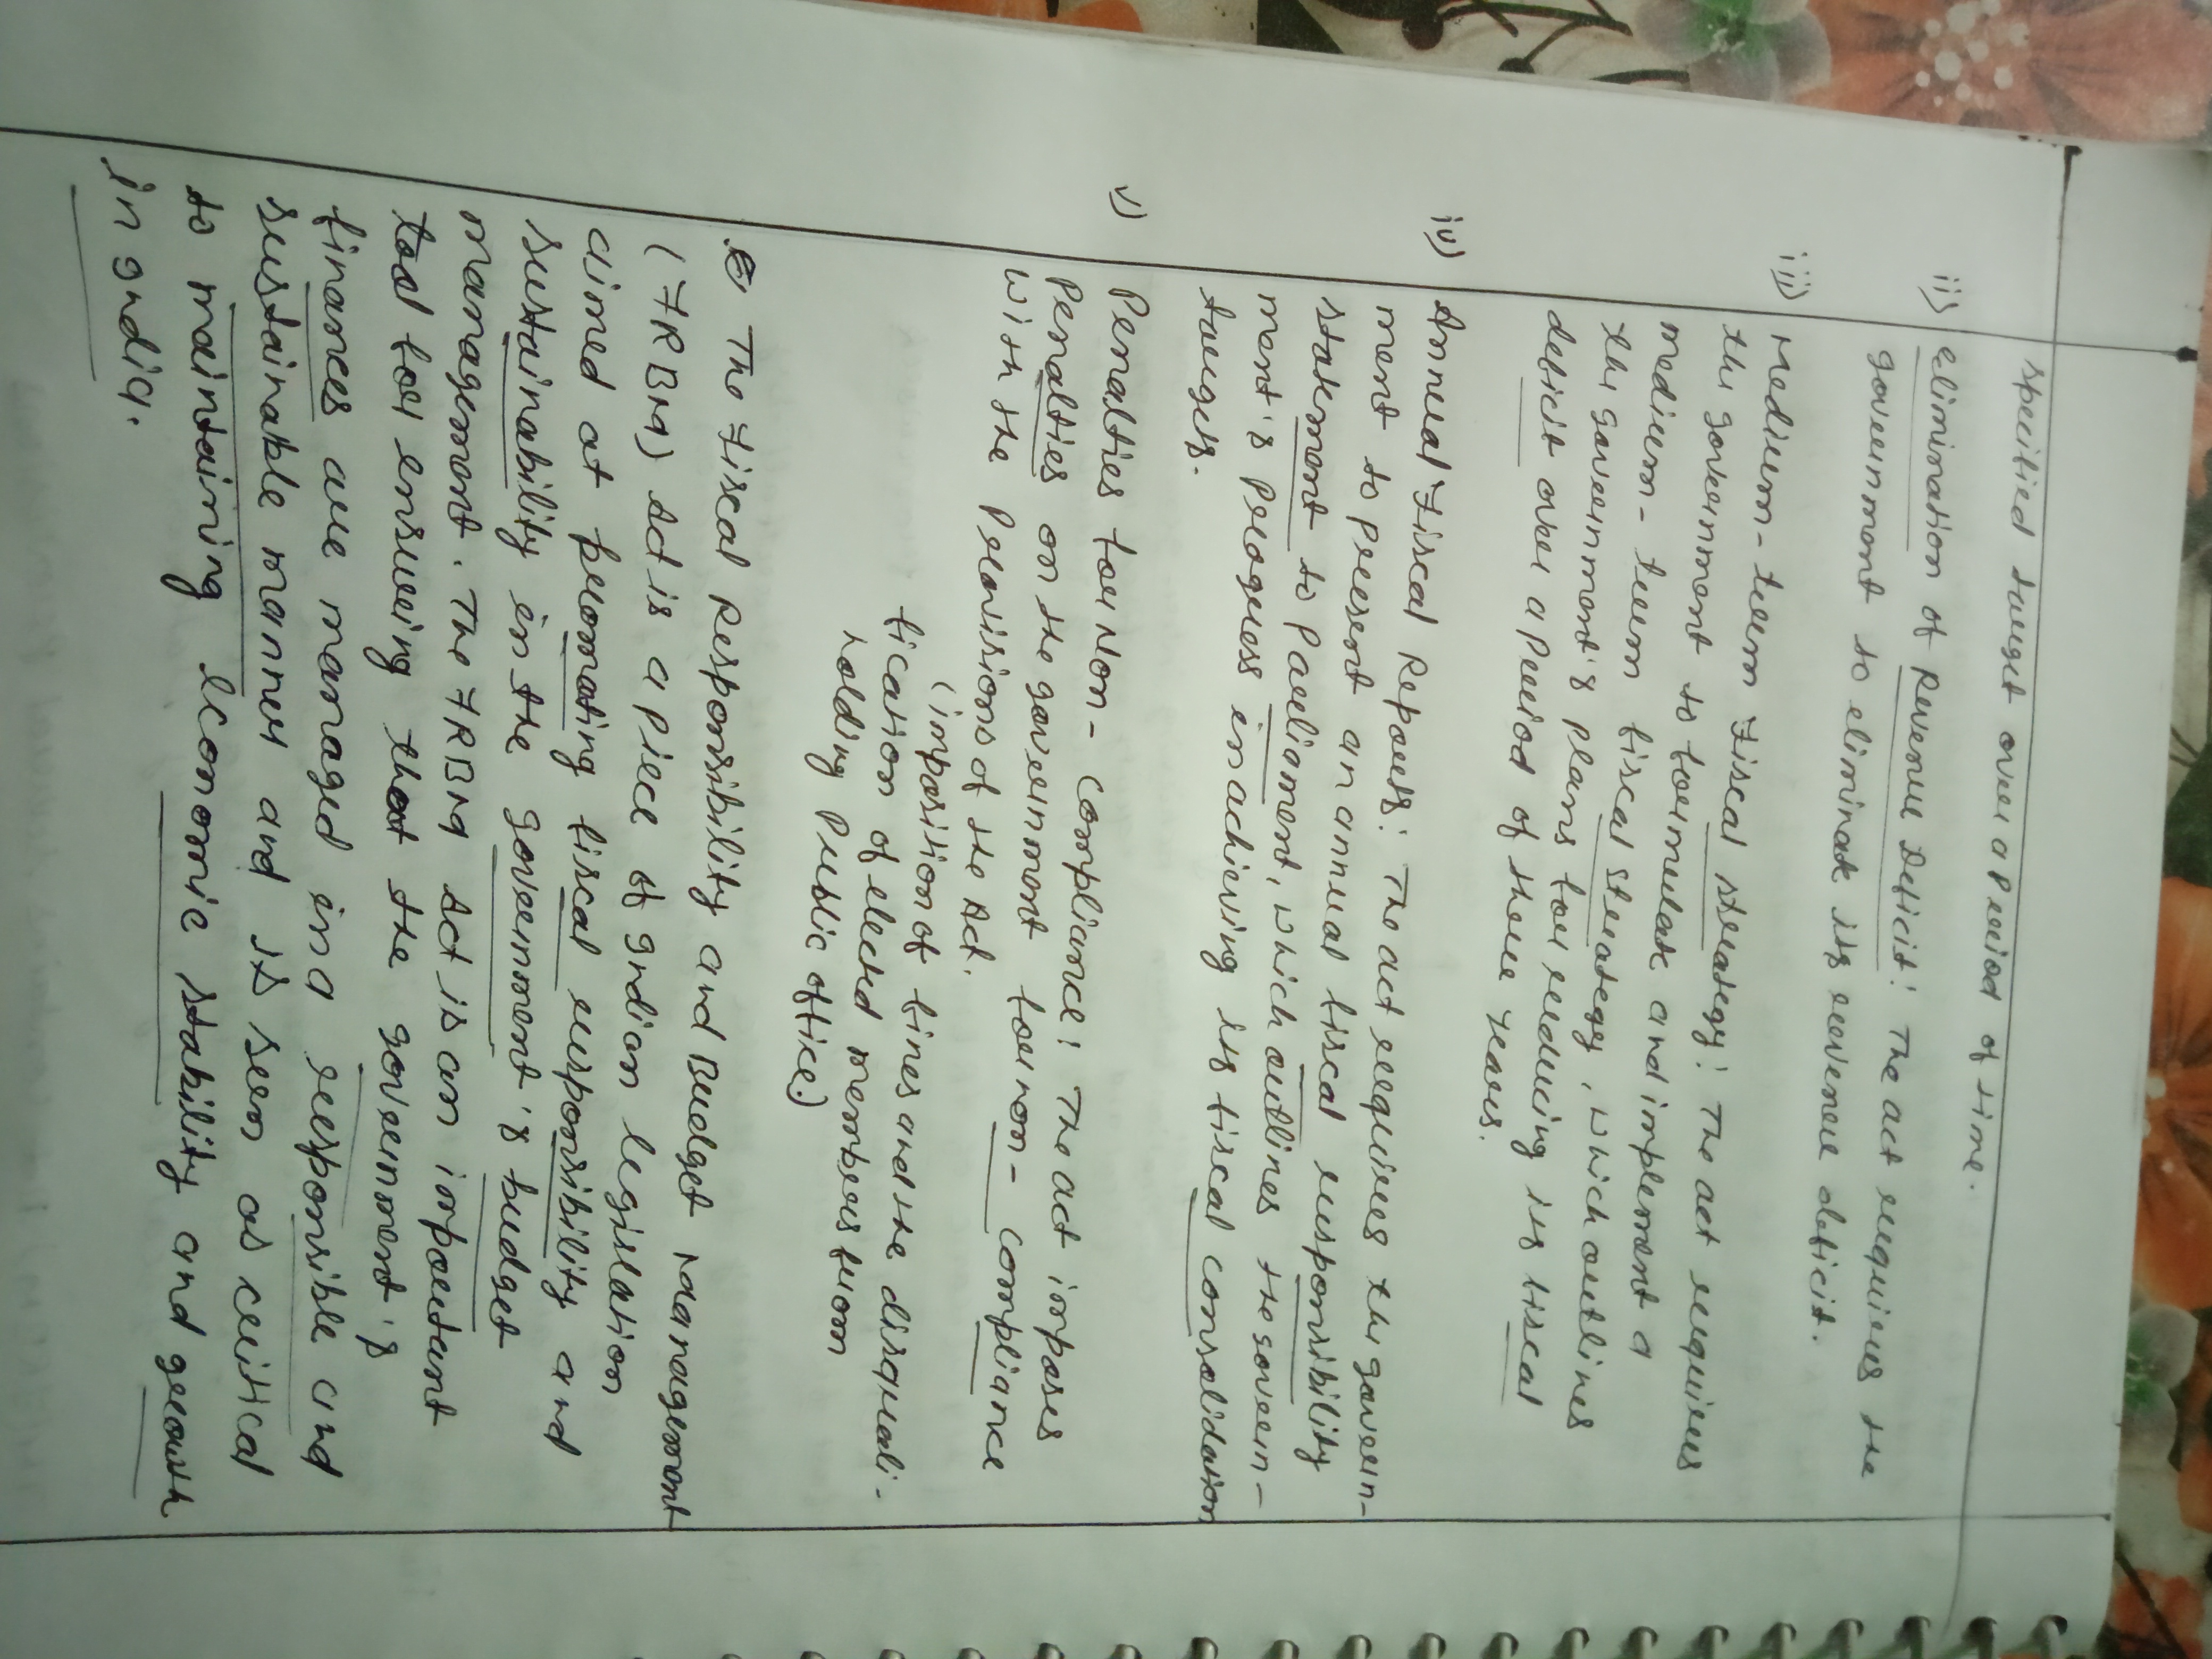 specified target over a period of time.
ii) elimination of Revenue Deficit: The act requires the
government to eliminate its revenue deficit.
iii) Medium-term Fiscal strategy: The act requires
the government to formulate and implement a
medium-term fiscal strategy, which outlines
the government's plans for reducing its fiscal
deficit over a Period of three years.
iv) Annual Fiscal Reports: The act requires the govern-
ment to present an annual fiscal responsibility
statement to Parliament, which outlines the govern-
ment's Progress in achieving its fiscal consolidation
targets.
v) Penalties for Non-compliance: The act imposes
Penalties on the government for non-compliance
with the Provisions of the Act.
(imposition of fines and the disquali-
fication of elected members from
holding Public office)
The Fiscal Responsibility and Budget Management
(FRBM) Act is a piece of Indian legislation
aimed at promoting fiscal responsibility and
sustainability in the government's budget
management. The FRBM Act is an important
tool for ensuring that the government's
finances are managed in a responsible and
sustainable manner and is seen as critical
to maintaining Economic stability and growth
in India.